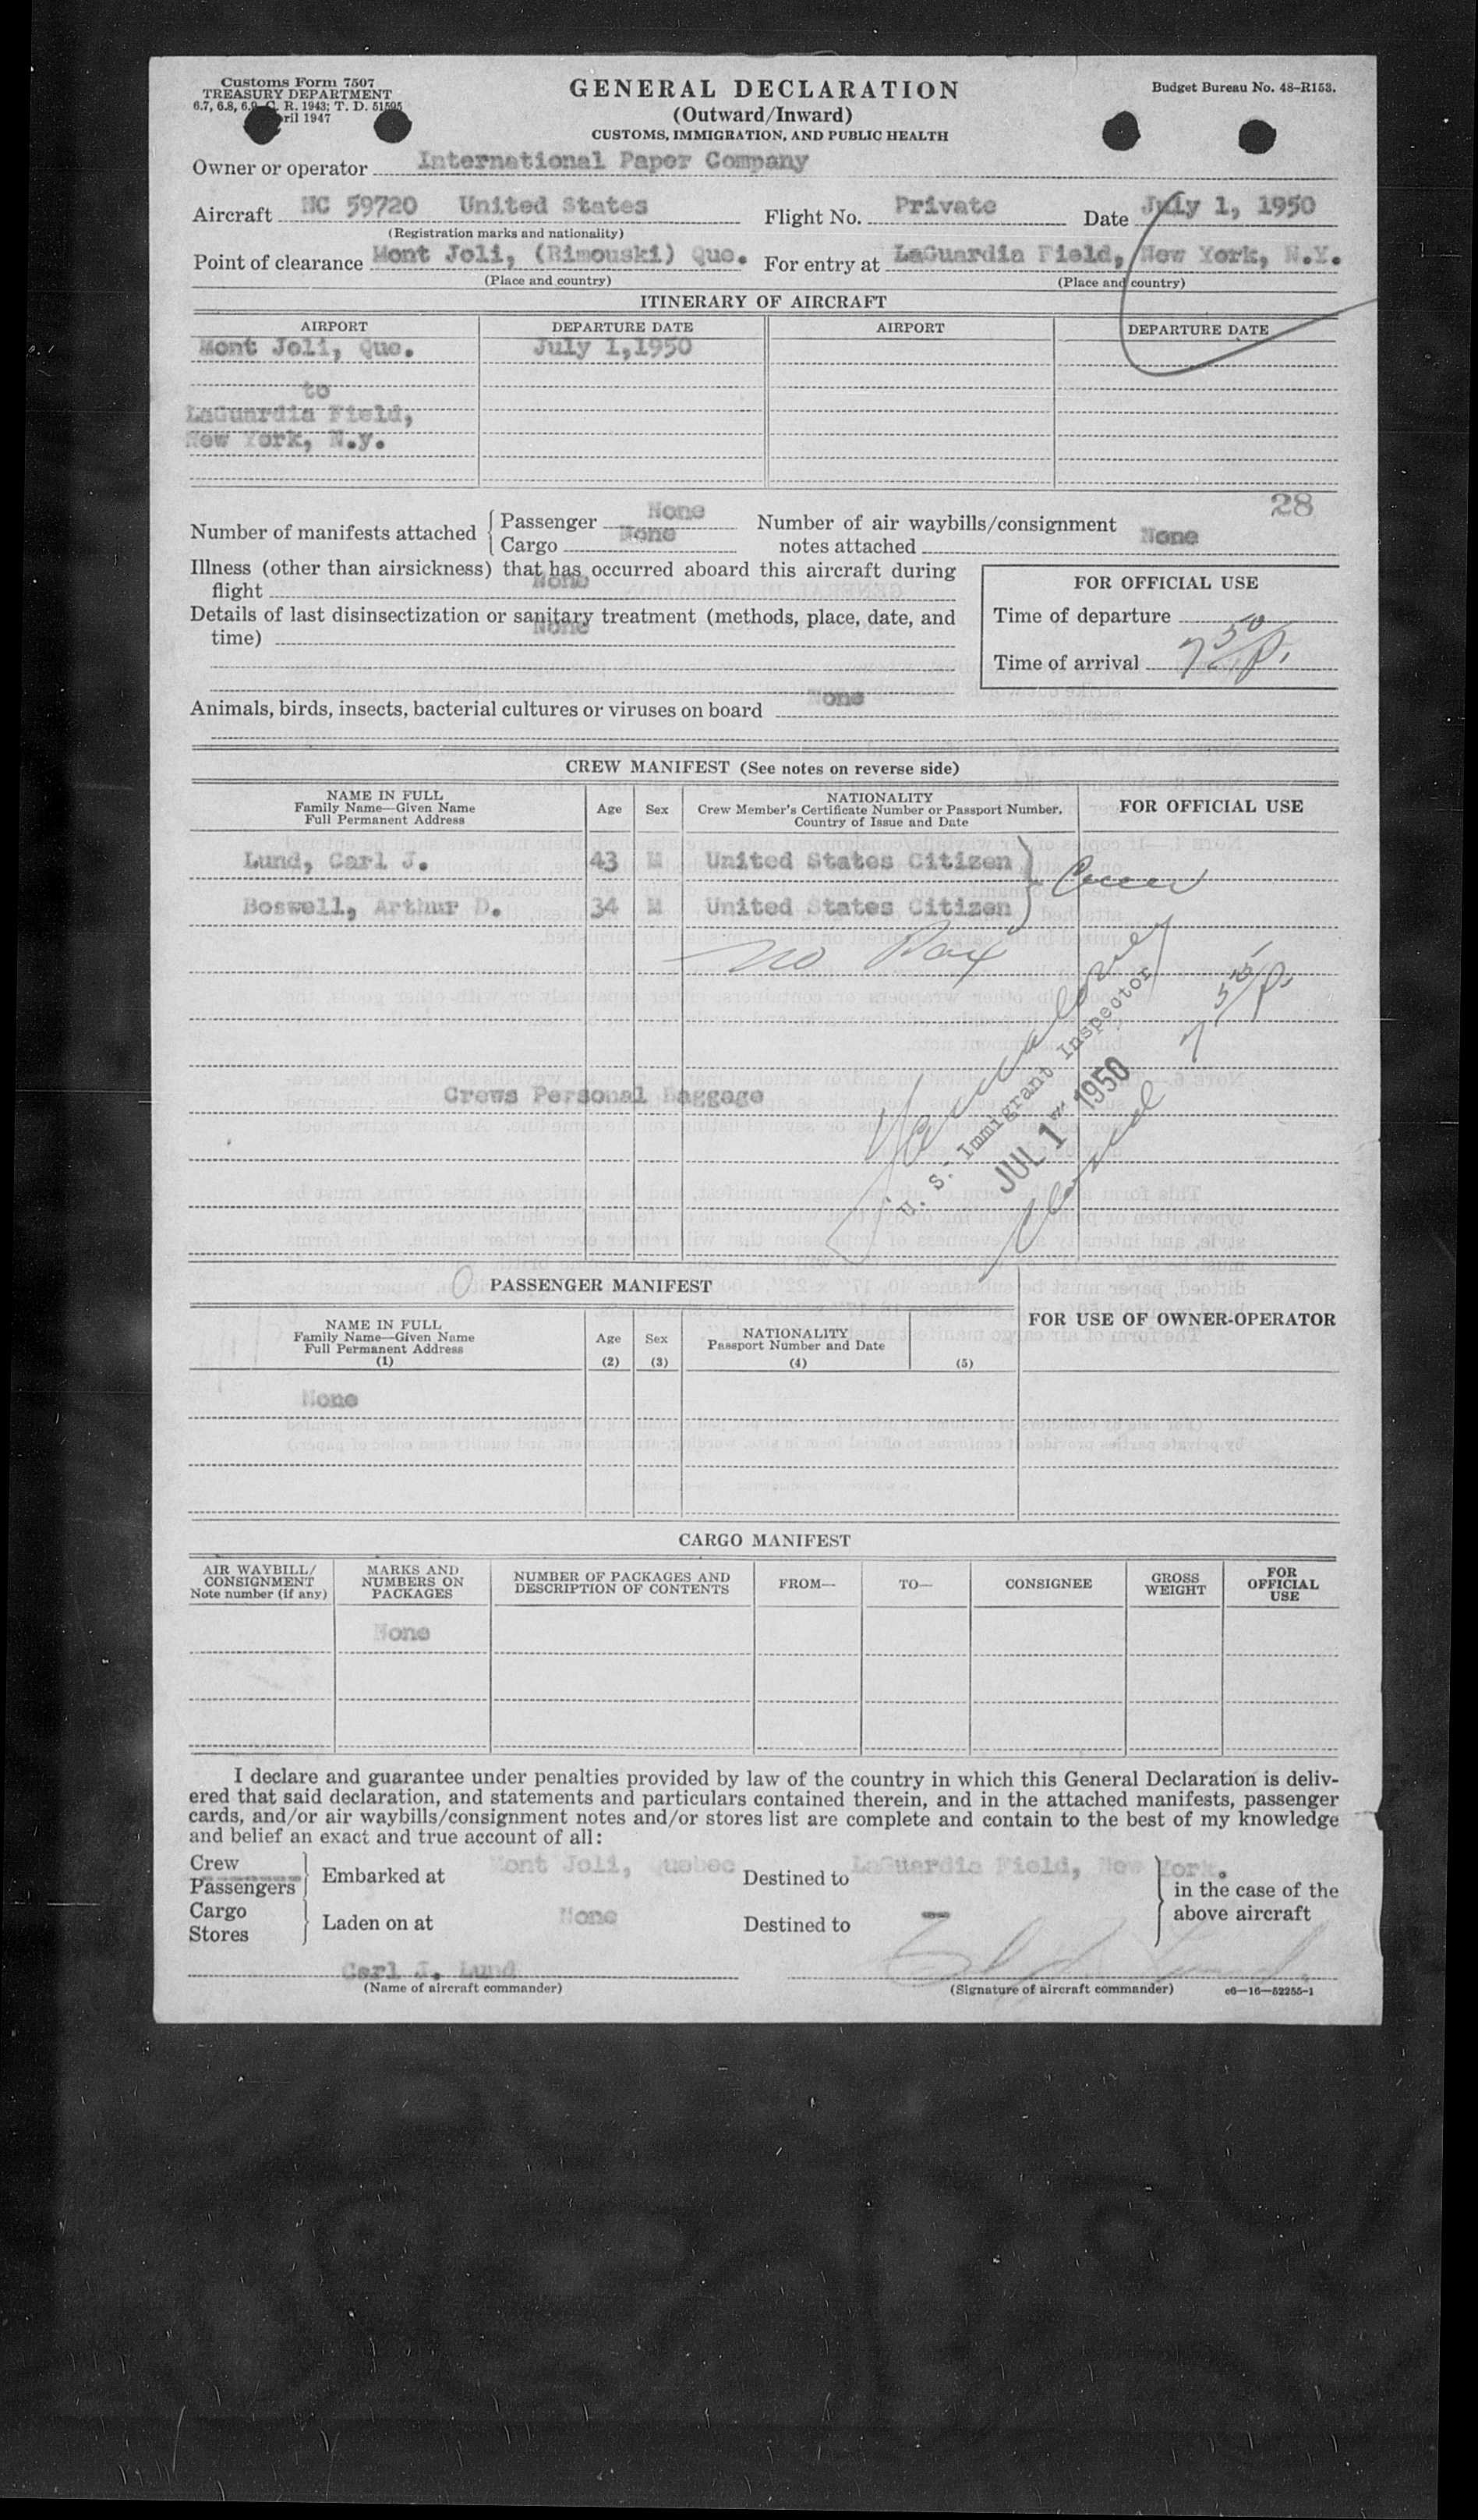 Customs Form 7507
TREASURY DEPARTMENT
6.7, 6.8, 6.9, C. R. 1943; T. D. 51595
ril 1947
GENERAL DECLARATION
(Outward/Inward)
CUSTOMS, IMMIGRATION, AND PUBLIC HEALTH
Budget Bureau No. 48-R153.
Owner or operator International Paper Company
Aircraft NC 59720 United States Flight No. Private Date July 1, 1950
(Registration marks and nationality)
Point of clearance Mont Joli, (Rimouski) Que. For entry at LaGuardia Field, New York, N.Y.
(Place and country) (Place and country)
ITINERARY OF AIRCRAFT
AIRPORT DEPARTURE DATE AIRPORT DEPARTURE DATE
Mont Joli, Que. July 1,1950
to
LaGuardia Field,
New York, N.y.
28
Number of manifests attached Passenger None Number of air waybills/consignment
Cargo None notes attached None
Illness (other than airsickness) that has occurred aboard this aircraft during
flight None
Details of last disinsectization or sanitary treatment (methods, place, date, and
time) None
FOR OFFICIAL USE
Time of departure
Time of arrival 7 50 p.
Animals, birds, insects, bacterial cultures or viruses on board None
CREW MANIFEST (See notes on reverse side)
NAME IN FULL
Family Name—Given Name
Full Permanent Address
Age Sex
NATIONALITY
Crew Member's Certificate Number or Passport Number,
Country of Issue and Date
FOR OFFICIAL USE
Lund, Carl J. 43 M United States Citizen
Boswell, Arthur D. 34 M United States Citizen
no Pax
U. S. Immigrant Inspector
JUL 1 - 1950
7 55 p.
Crews Personal Baggage
0 PASSENGER MANIFEST
NAME IN FULL
Family Name—Given Name
Full Permanent Address
(1)
Age
(2)
Sex
(3)
NATIONALITY
Passport Number and Date
(4)
(5)
FOR USE OF OWNER-OPERATOR
None
CARGO MANIFEST
AIR WAYBILL/
CONSIGNMENT
Note number (if any)
MARKS AND
NUMBERS ON
PACKAGES
NUMBER OF PACKAGES AND
DESCRIPTION OF CONTENTS
FROM—
TO—
CONSIGNEE
GROSS
WEIGHT
FOR
OFFICIAL
USE
None
I declare and guarantee under penalties provided by law of the country in which this General Declaration is deliv-
ered that said declaration, and statements and particulars contained therein, and in the attached manifests, passenger
cards, and/or air waybills/consignment notes and/or stores list are complete and contain to the best of my knowledge
and belief an exact and true account of all:
Crew
Passengers
Embarked at Mont Joli, Quebec Destined to LaGuardia Field, New York.
Cargo
Stores
Laden on at None Destined to —
in the case of the
above aircraft
Carl J. Lund
(Name of aircraft commander)
(Signature of aircraft commander)
c6—16—52255-1